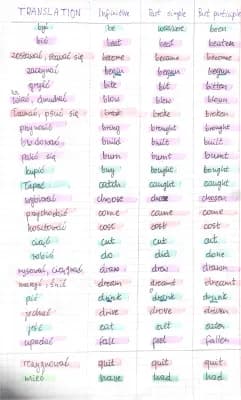 TRANSLATION Infinitive Past simple Past participle
być be was/were been
bić beat beat beaten
zostawać, stawać się become became become
zaczynać begin began begun
gryźć bite bit bitten
wiać, dmuchać blow blew blown
łamać, psuć się break broke broken
przynosić bring brought brought
budować build built built
palić się burn burnt burnt
kupić buy bought bought
łapać catch caught caught
wybierać choose chose chosen
przychodzić come came come
kosztować cost cost cost
ciąć cut cut cut
robić do did done
rysować draw drew drawn
marzyć, śnić dream dreamt dreamt
pić drink drank drunk
jechać drive drove driven
jeść eat ate eaten
upadać fall fell fallen
rezygnować quit quit quit
mieć have had had